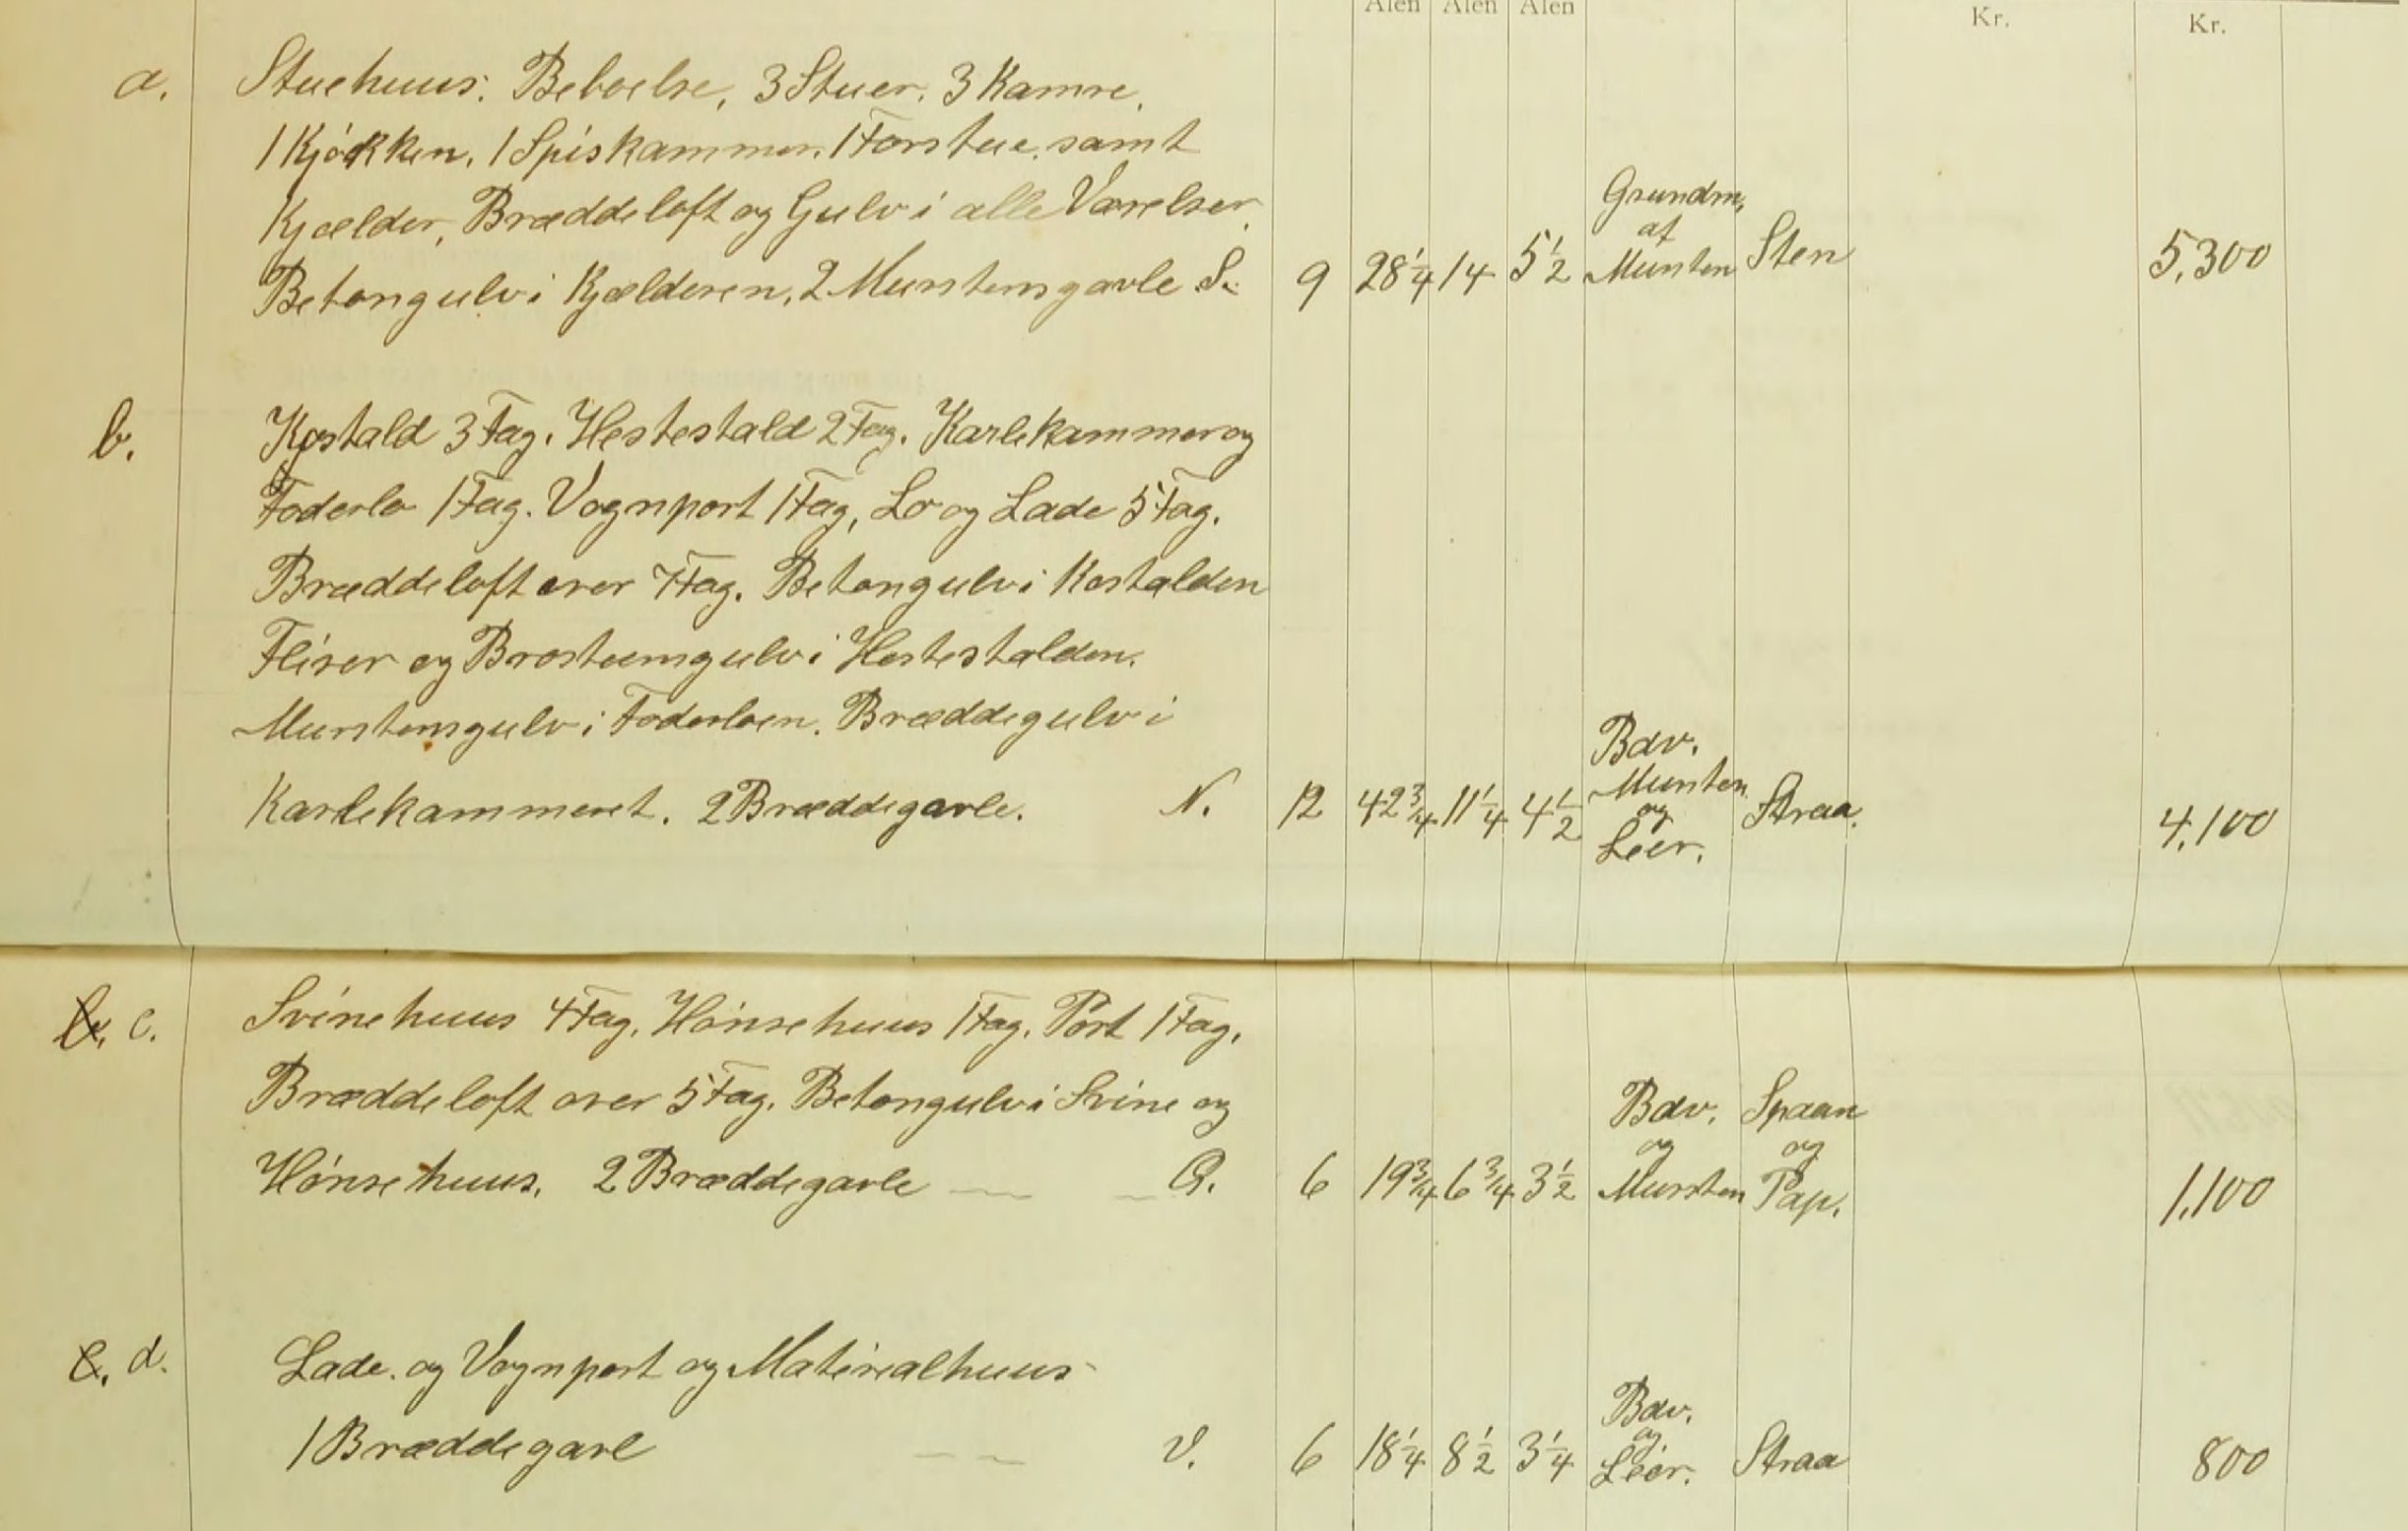 Alen Alen Alen Kr. Kr.
a. Stuehuus: Beboelse, 3 Stuer, 3 Kamre,
1 Kjøkken, 1 Spiskammer, 1 Forstue, samt
Kjælder, Bræddeloft og Gulv i alle Værelser,
Betongulv i Kjælderen, 2 Murstensgavle S. 9 28 1/4 14 5 1/2 Grundm. af Mursten Sten 5,300
b. Kostald 3 Fag. Hestestald 2 Fag. Karlekammer og
Foderlo 1 Fag. Vognport 1 Fag, Lo og Lade 5 Fag.
Bræddeloft over 7 Fag. Betongulv i Kostalden
Fliser og Brostensgulv i Hestestalden.
Murstensgulv i Foderloen. Bræddegulv i
Karlekammeret. 2 Bræddegavle. N. 12 42 3/4 11 1/4 4 1/2 Bdv. Mursten og Leer. Straa. 4,100
b. c. Svinehuus 4 Fag, Hønsehuus 1 Fag. Port 1 Fag.
Bræddeloft over 5 Fag. Betongulv i Svine og
Hønsehuus. 2 Bræddegavle Ø. 6 19 3/4 6 3/4 3 1/2 Bdv. og Mursten Spaan og Pap. 1,100
c. d. Lade. og Vognport og Materialhuus
1 Bræddegavl V. 6 18 1/4 8 1/2 3 1/4 Bdv. og Leer. Straa 800